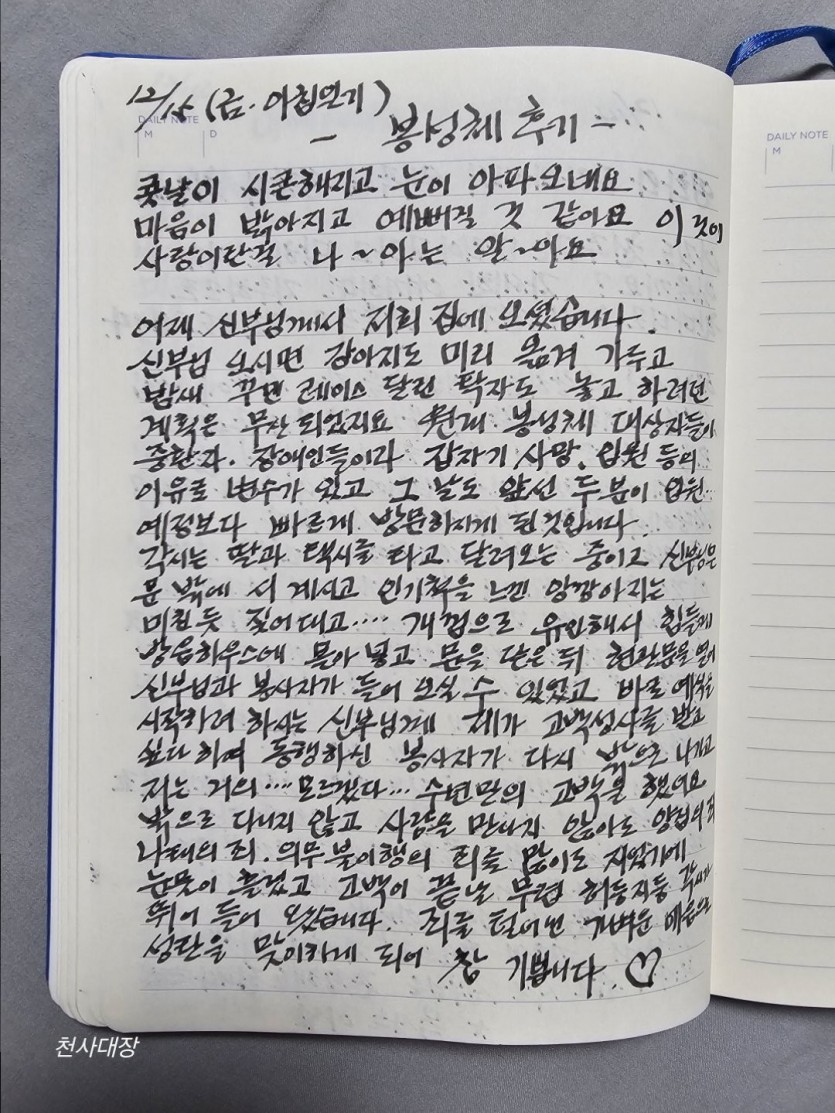 12/15 (금. 아침일기)
DAILY NOTE
M D
- 봉성체 후기 -
콧날이 시큰해지고 눈이 아파오네요
마음이 맑아지고 예뻐질 것 같아요 이것이
사랑이란걸 나~아는 알~아요
어제 신부님께서 저희 집에 오셨습니다.
신부님 오시면 강아지도 미리 옮겨 가두고
밤새 꾸면 레이스 달린 탁자도 놓고 하려던
계획은 무산되었지요 원래 봉성체 대상자들이
중환자. 장애인들이라 갑자기 사망, 입원 등의
이유로 변수가 있고 그 날도 앞선 두 분이 입원
예정보다 빠르게 방문하시게 된것입니다.
각시는 딸과 택시를 타고 달려오는 중이고 신부님은
문 밖에 서 계시고 인기척을 느낀 앙깜아지는
미친듯 짖어대고.... 개껌으로 유인해서 힘들게
방음하우스에 몰아 넣고 문을 닫은 뒤 현관문을 열어
신부님과 봉사자가 들어 오실 수 있었고 바로 예식을
시작하려 하시는 신부님께 제가 고백성사를 받고
싶다 하여 동행하신 봉사자가 다시 밖으로 나가고
저는 거의.... 모르겠다... 수년만의 고백을 했어요
밖으로 다니지 않고 사람을 만나지 않아도 양심의 죄
나태의 죄. 의무 불이행의 죄를 많이도 지었기에
눈물이 흘렀고 고백이 끝날 무렵 허둥지둥 각시가
뛰어 들어 왔습니다. 죄를 털어낸 가벼운 마음으로
성탄을 맞이하게 되어 참 기쁩니다. ♡
DAILY NOTE
M
천사대장